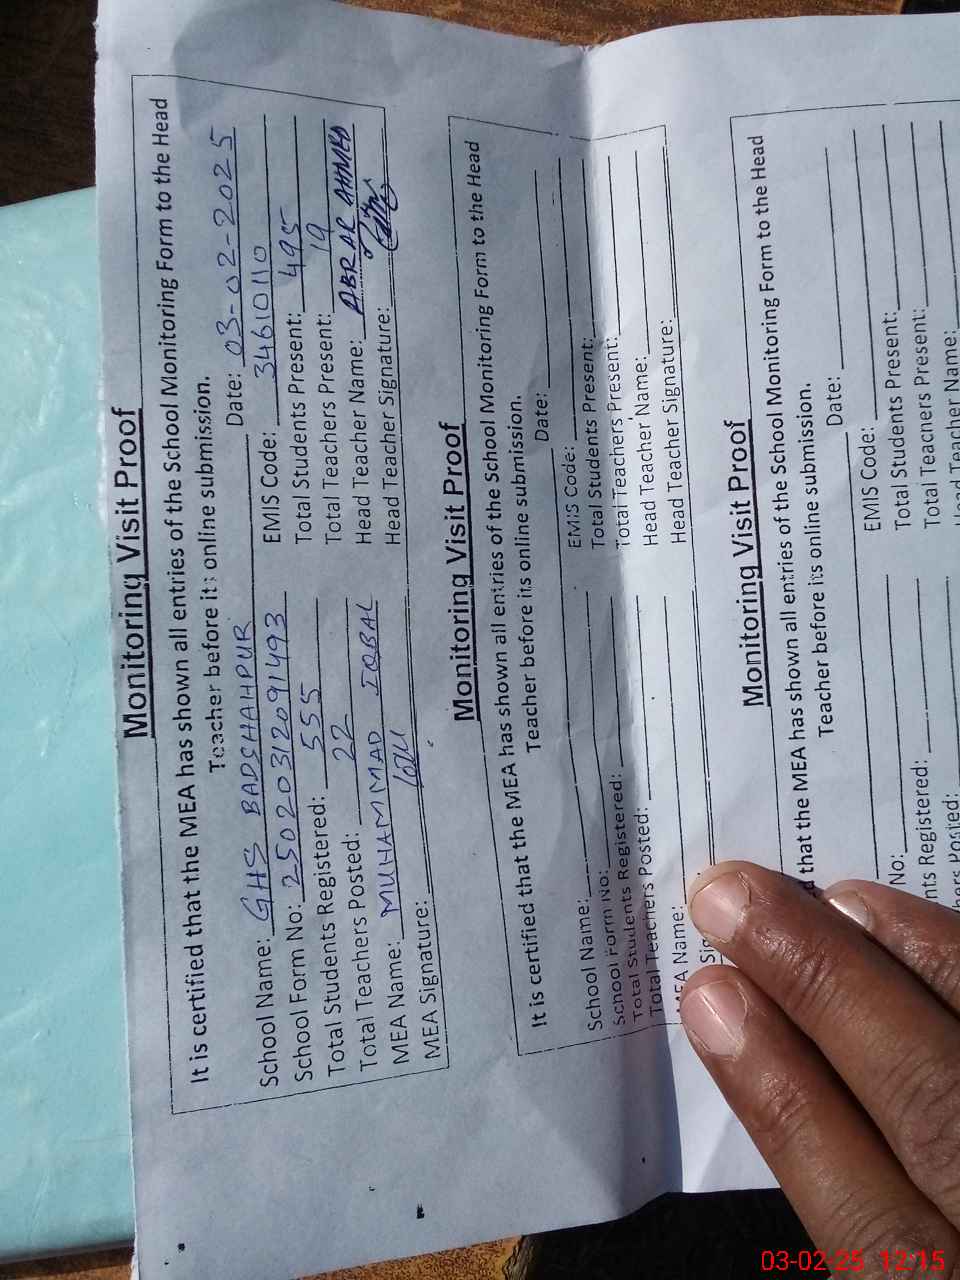 Monitoring Visit Proof
It is certified that the MEA has shown all entries of the School Monitoring Form to the Head
Teacher before its online submission.
School Name: GHS BADSHAHPUR Date: 03-02-2025
School Form No: 25020312091493 EMIS Code: 34610110
Total Students Registered: 555 Total Students Present: 495
Total Teachers Posted: 22 Total Teachers Present: 19
MEA Name: MUHAMMAD IQBAL Head Teacher Name: ABRAR AHMED
MEA Signature: Head Teacher Signature:
Monitoring Visit Proof
It is certified that the MEA has shown all entries of the School Monitoring Form to the Head
Teacher before its online submission.
School Name: Date:
School Form No: EMIS Code:
Total Students Registered: Total Students Present:
Total Teachers Posted: Total Teachers Present:
MEA Name: Head Teacher Name:
Sig Head Teacher Signature:
Monitoring Visit Proof
d that the MEA has shown all entries of the School Monitoring Form to the Head
Teacher before its online submission.
Date:
No: EMIS Code:
nts Registered: Total Students Present:
hers Posted: Total Teachers Present:
Head Teacher Name:
03-02-25 12:15